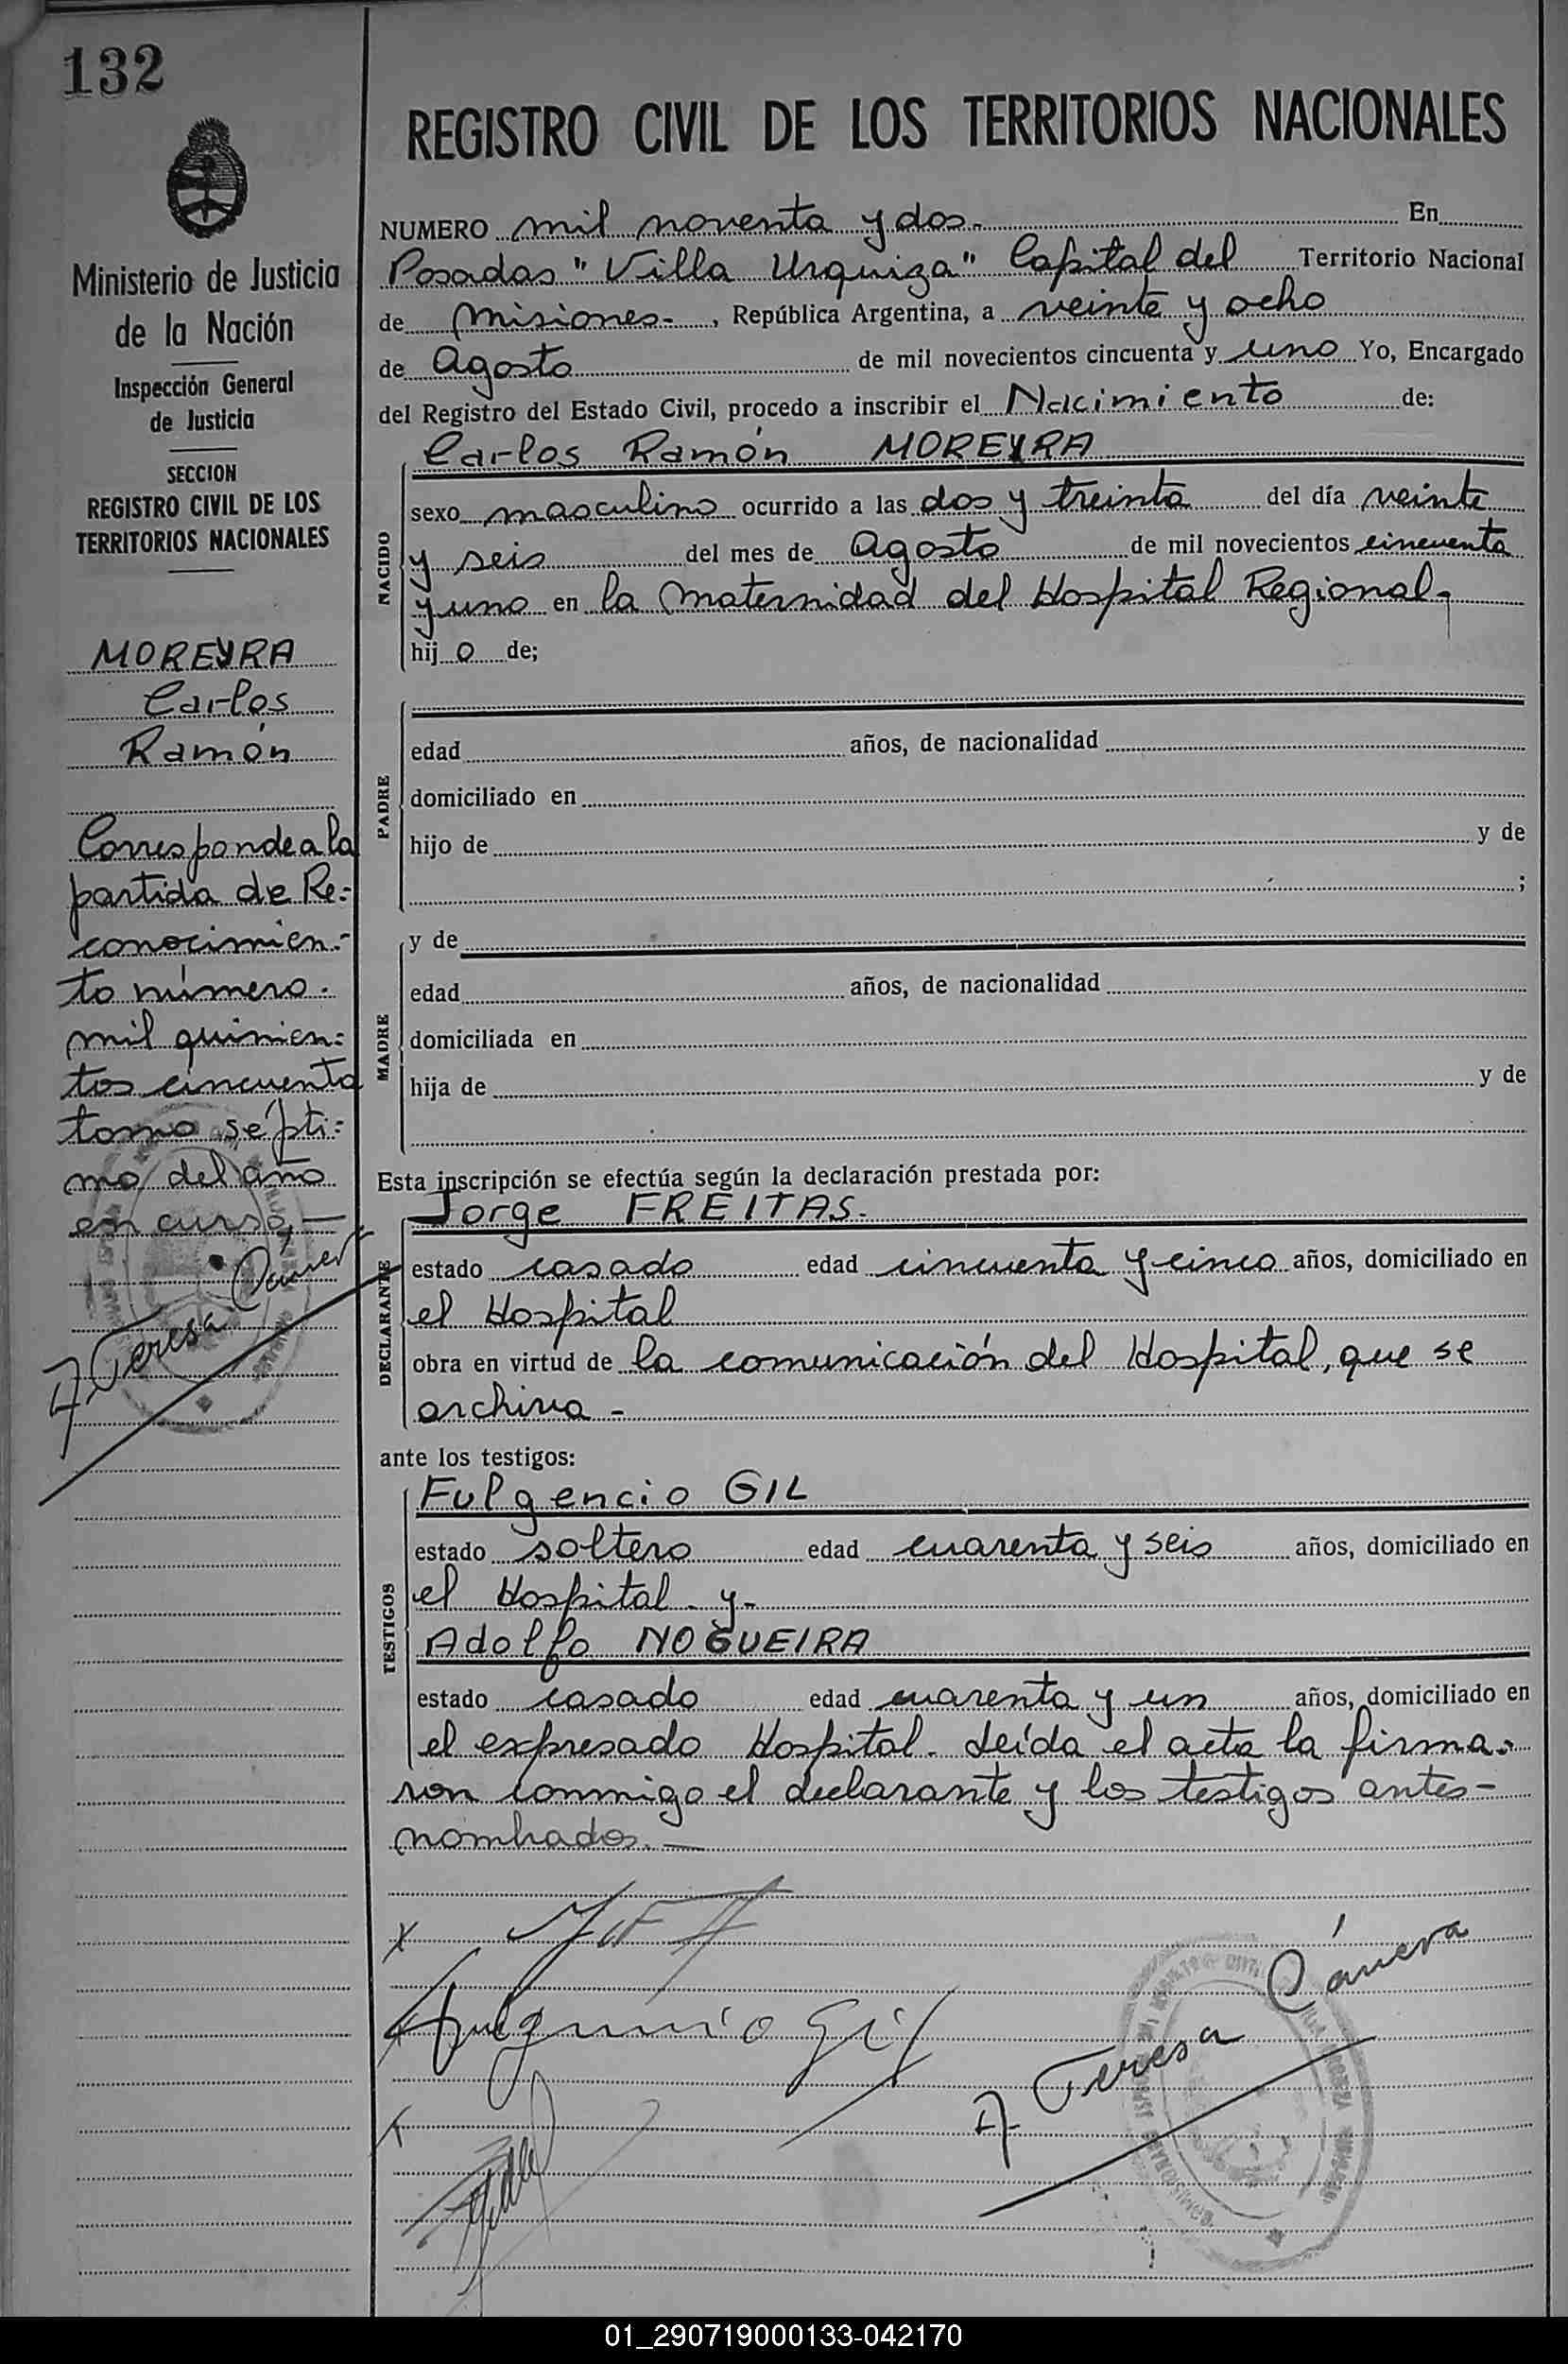 132
Ministerio de Justicia
de la Nación
Inspección General
de Justicia
SECCION
REGISTRO CIVIL DE LOS
TERRITORIOS NACIONALES
MOREYRA
Carlos
Ramón
Corresponde a la
partida de Re-
conocimien-
to número
mil quinien-
tos cincuenta
tomo sépti-
mo del año
en curso,—
A. Teresa Cánera
REGISTRO CIVIL DE LOS TERRITORIOS NACIONALES
NUMERO mil noventa y dos.- En
Posadas "Villa Urquiza" Capital del Territorio Nacional
de Misiones- , República Argentina, a veinte y ocho
de Agosto de mil novecientos cincuenta y uno Yo, Encargado
del Registro del Estado Civil, procedo a inscribir el Nacimiento de:
Carlos Ramón MOREYRA
NACIDO
sexo masculino ocurrido a las dos y treinta del día veinte
y seis del mes de Agosto de mil novecientos cincuenta
y uno en la Maternidad del Hospital Regional-
hij o de;
PADRE
edad años, de nacionalidad
domiciliado en
hijo de y de
;
MADRE
y de
edad años, de nacionalidad
domiciliada en
hija de y de
Esta inscripción se efectúa según la declaración prestada por:
Jorge FREITAS.
DECLARANTE
estado casado edad cincuenta y cinco años, domiciliado en
el Hospital
obra en virtud de la comunicación del Hospital, que se
archiva -
ante los testigos:
Fulgencio GIL
TESTIGOS
estado soltero edad cuarenta y seis años, domiciliado en
el Hospital y-
Adolfo NOGUEIRA
estado casado edad cuarenta y un años, domiciliado en
el expresado Hospital. Leída el acta la firma-
ron conmigo el declarante y los testigos antes-
nombrados.—
Fulgencio Gil
A Teresa Cánera
01_290719000133-042170